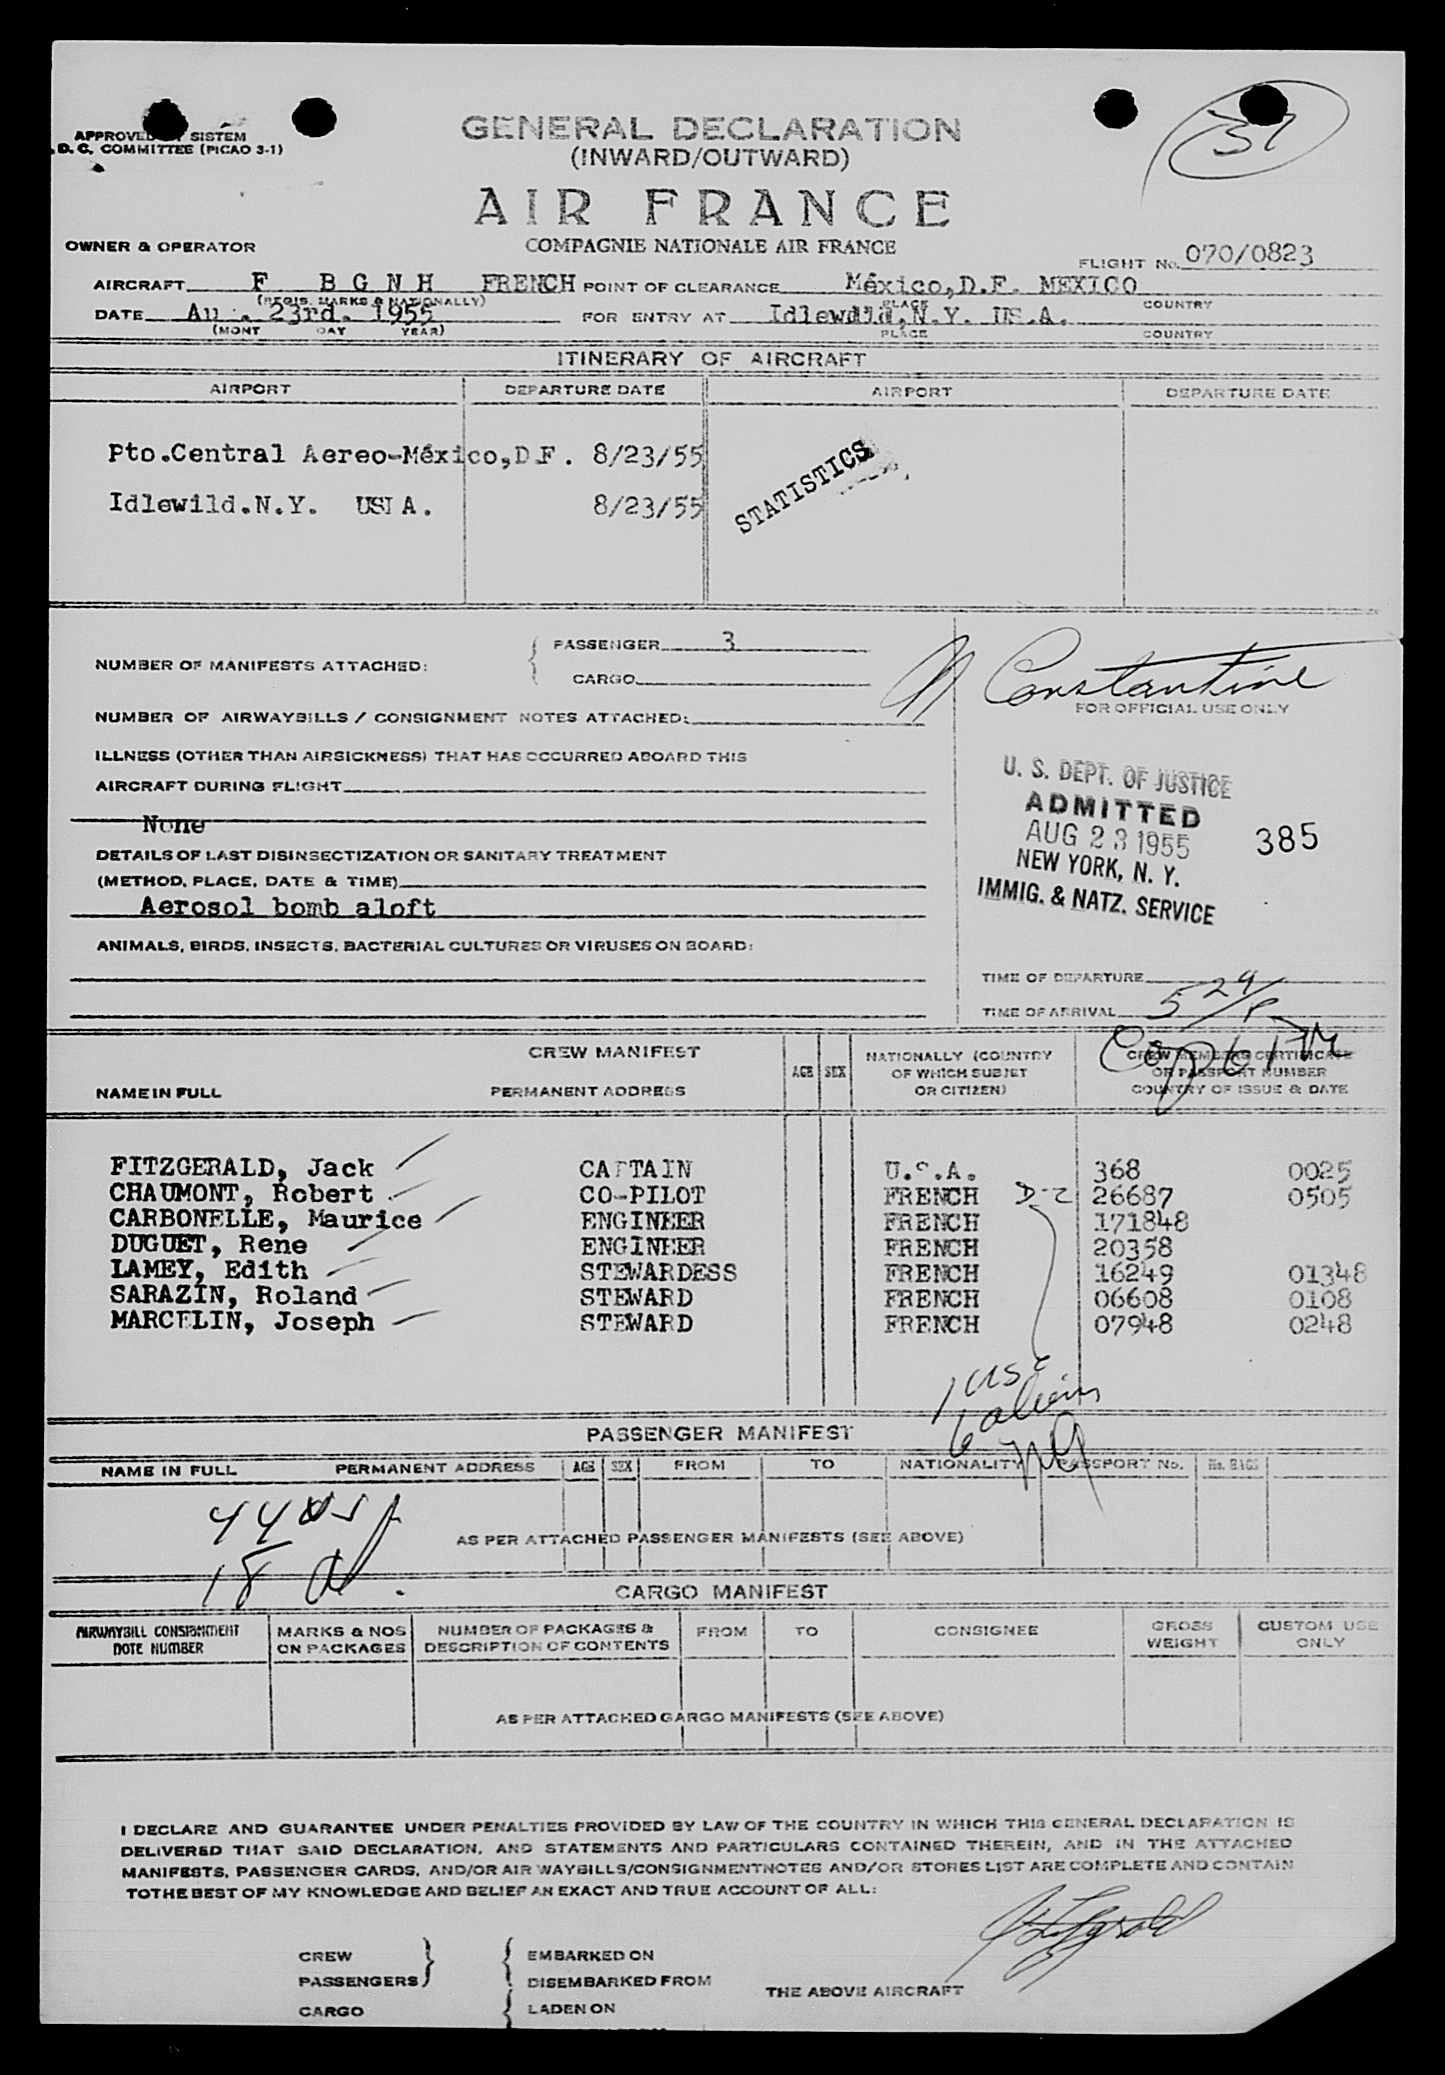 37
APPROVED SISTEM
D. C. COMMITTEE (PICAO 3-1)
GENERAL DECLARATION
(INWARD/OUTWARD)
AIR FRANCE
OWNER & OPERATOR
COMPAGNIE NATIONALE AIR FRANCE
FLIGHT No. 070/0823
AIRCRAFT F B G N H FRENCH POINT OF CLEARANCE México,D.F. MEXICO
(REGIS. MARKS & NATIONALLY) PLACE COUNTRY
DATE Au . 23rd. 1955 FOR ENTRY AT Idlewild,N.Y. US.A.
(MONT DAY YEAR) PLACE COUNTRY
ITINERARY OF AIRCRAFT
AIRPORT DEPARTURE DATE AIRPORT DEPARTURE DATE
Pto.Central Aereo-México,D.F. 8/23/55
STATISTICS
Idlewild.N.Y. USA. 8/23/55
PASSENGER 3
NUMBER OF MANIFESTS ATTACHED:
CARGO
Constantine
FOR OFFICIAL USE ONLY
NUMBER OF AIRWAYBILLS / CONSIGNMENT NOTES ATTACHED:
ILLNESS (OTHER THAN AIRSICKNESS) THAT HAS OCCURRED ABOARD THIS
AIRCRAFT DURING FLIGHT
None
U. S. DEPT. OF JUSTICE
ADMITTED
AUG 23 1955 385
NEW YORK, N. Y.
IMMIG. & NATZ. SERVICE
DETAILS OF LAST DISINSECTIZATION OR SANITARY TREATMENT
(METHOD, PLACE, DATE & TIME)
Aerosol bomb aloft
ANIMALS, BIRDS, INSECTS, BACTERIAL CULTURES OR VIRUSES ON BOARD:
TIME OF DEPARTURE
TIME OF ARRIVAL 5 29/P
CREW MANIFEST
NAME IN FULL PERMANENT ADDRESS AGE SEX
NATIONALLY (COUNTRY
OF WHICH SUBJET
OR CITIZEN)
CREW MEMBERS CERTIFICATE
OR PASSPORT NUMBER
COUNTRY OF ISSUE & DATE
FITZGERALD, Jack CAPTAIN U.S.A. 368 0025
CHAUMONT, Robert CO-PILOT FRENCH D-2 26687 0505
CARBONELLE, Maurice ENGINEER FRENCH 171848
DUGUET, Rene ENGINEER FRENCH 20358
LAMEY, Edith STEWARDESS FRENCH 16249 01348
SARAZIN, Roland STEWARD FRENCH 06608 0108
MARCELIN, Joseph STEWARD FRENCH 07948 0248
1 USC
6 aliens
PASSENGER MANIFEST
NAME IN FULL PERMANENT ADDRESS AGE SEX FROM TO NATIONALITY PASSPORT No. No. BAGS
44
18
AS PER ATTACHED PASSENGER MANIFESTS (SEE ABOVE)
CARGO MANIFEST
AIRWAYBILL CONSIGNMENT
NOTE NUMBER
MARKS & NOS
ON PACKAGES
NUMBER OF PACKAGES &
DESCRIPTION OF CONTENTS
FROM TO CONSIGNEE
GROSS
WEIGHT
CUSTOM USE
ONLY
AS PER ATTACHED CARGO MANIFESTS (SEE ABOVE)
I DECLARE AND GUARANTEE UNDER PENALTIES PROVIDED BY LAW OF THE COUNTRY IN WHICH THIS GENERAL DECLARATION IS
DELIVERED THAT SAID DECLARATION, AND STATEMENTS AND PARTICULARS CONTAINED THEREIN, AND IN THE ATTACHED
MANIFESTS, PASSENGER CARDS, AND/OR AIR WAYBILLS/CONSIGNMENTNOTES AND/OR STORES LIST ARE COMPLETE AND CONTAIN
TOTHE BEST OF MY KNOWLEDGE AND BELIEF AN EXACT AND TRUE ACCOUNT OF ALL:
CREW EMBARKED ON
PASSENGERS DISEMBARKED FROM
THE ABOVE AIRCRAFT
CARGO LADEN ON